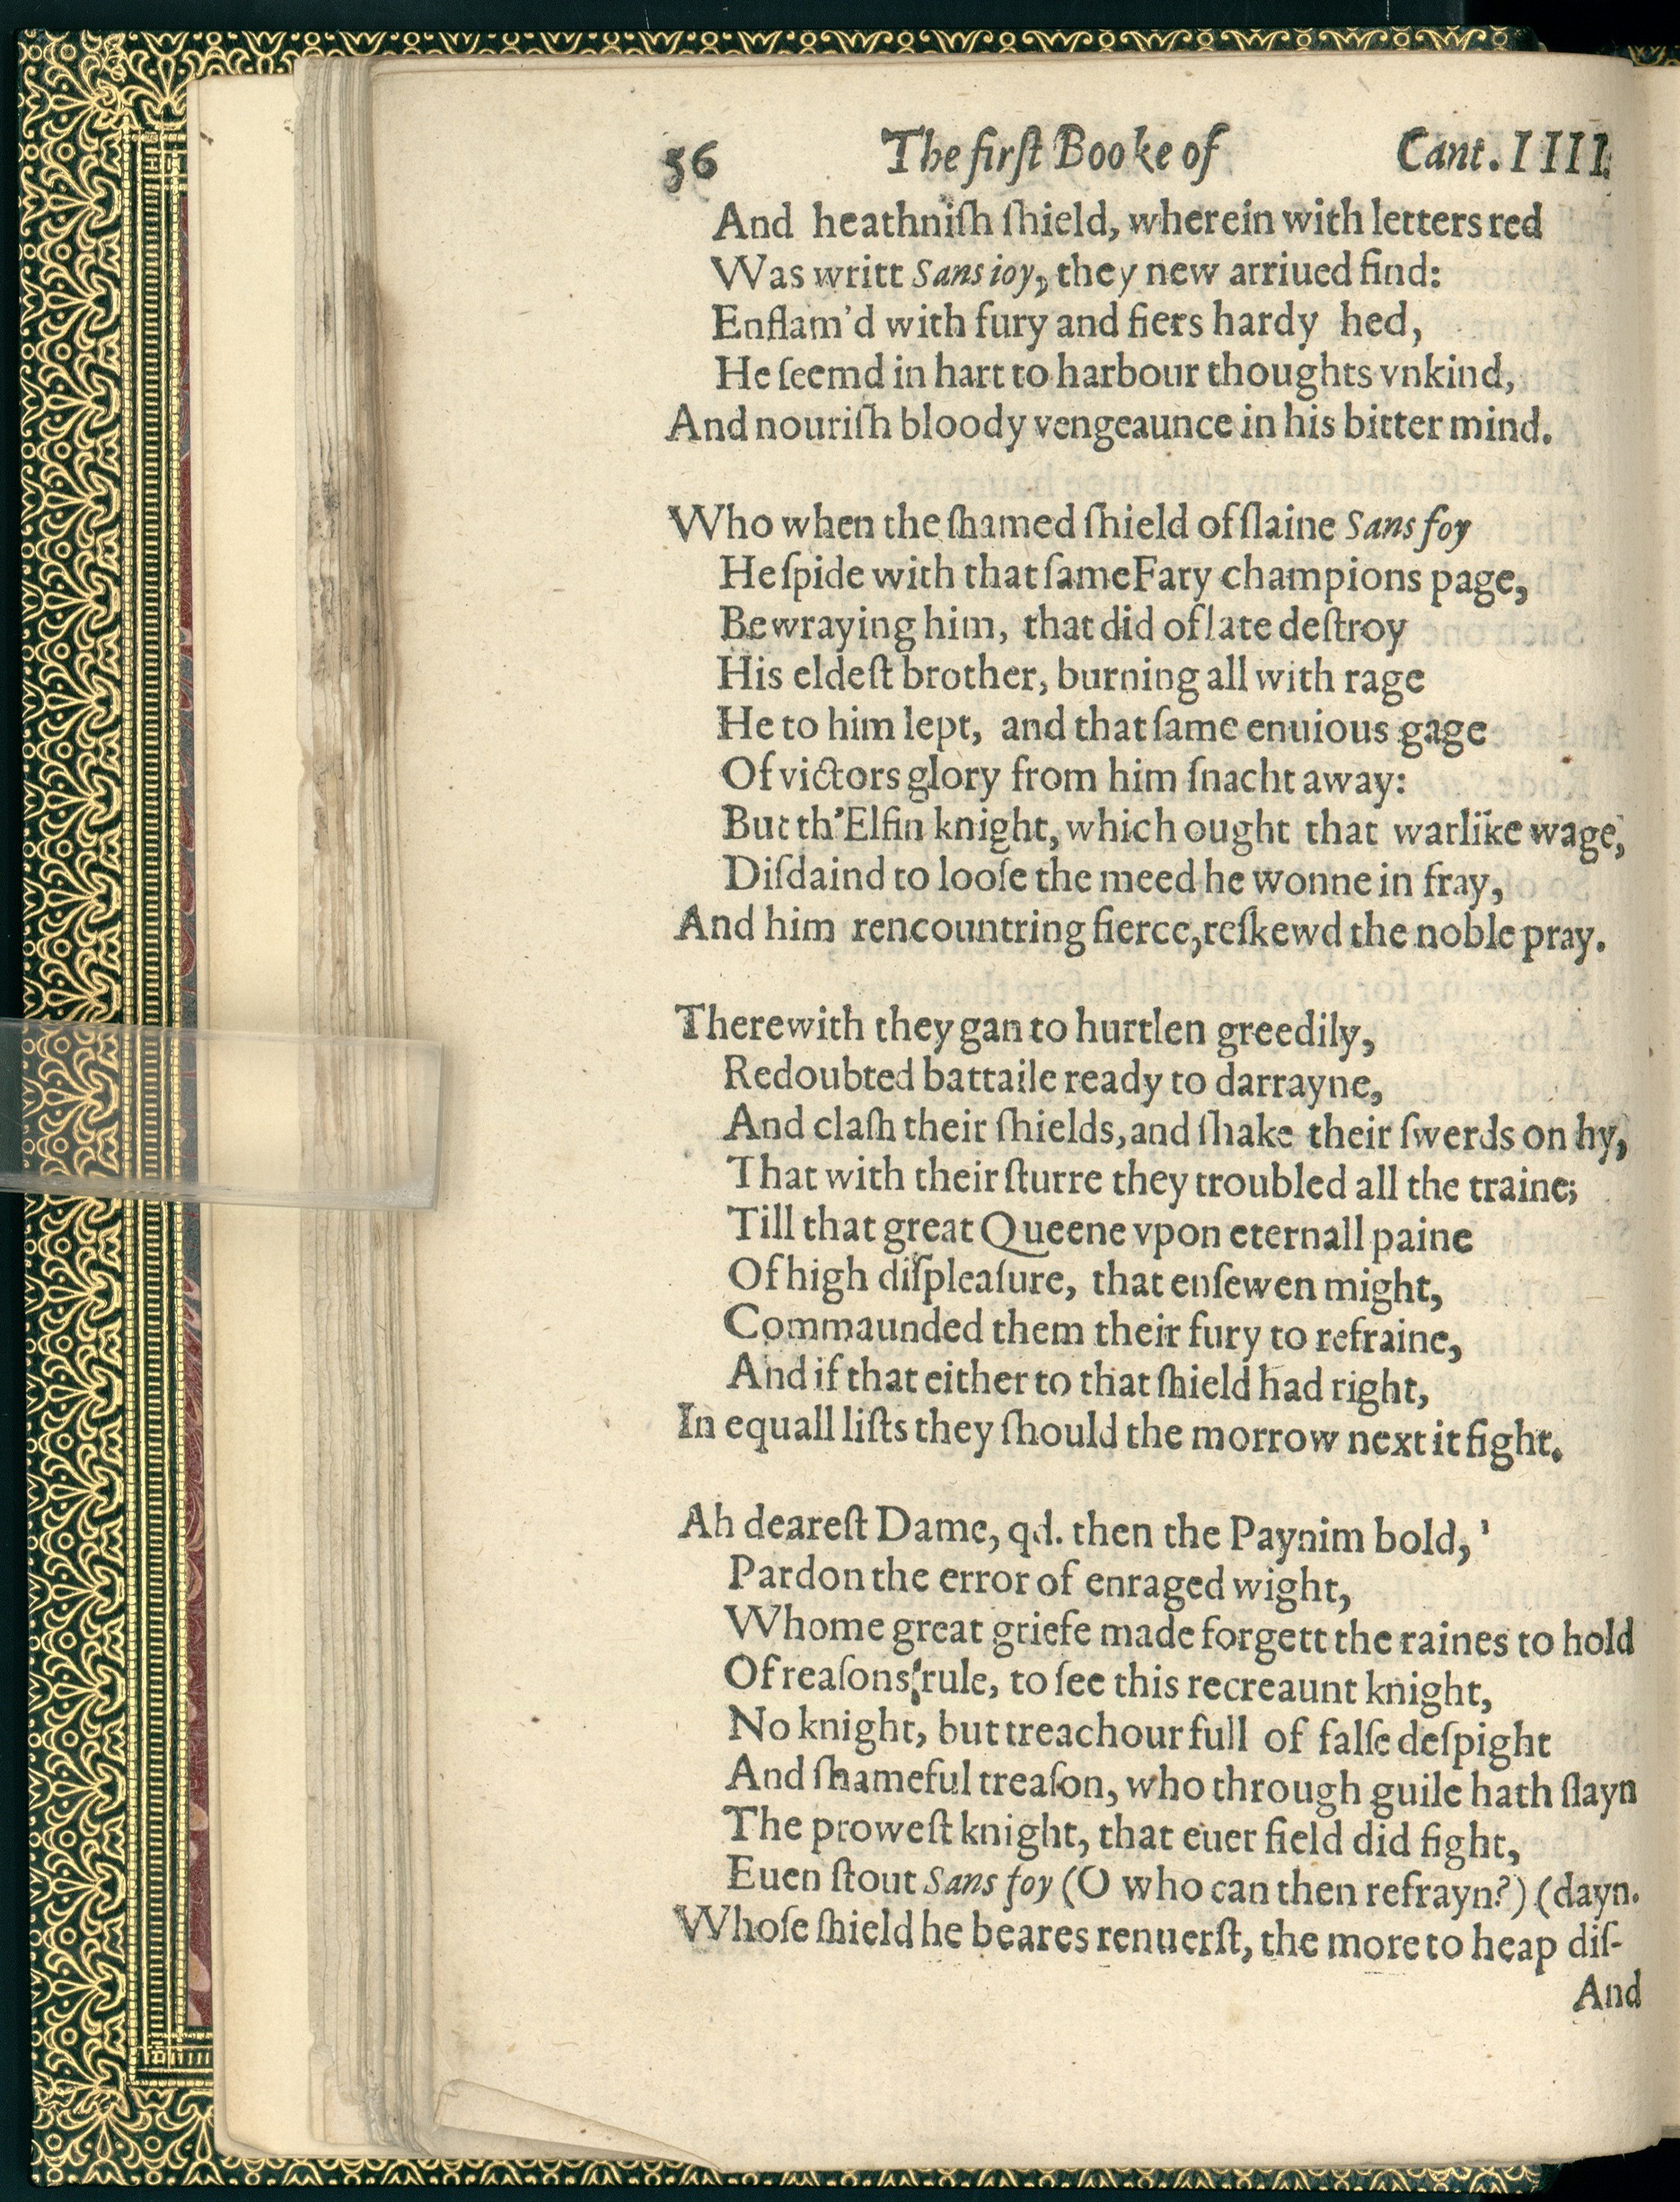 56 The firſt Booke of Cant. IIII.
And heathniſh ſhield, wherein with letters red
Was writt Sans ioy, they new arriued find:
Enflam'd with fury and fiers hardy hed,
He ſeemd in hart to harbour thoughts vnkind,
And nouriſh bloody vengeaunce in his bitter mind.
Who when the ſhamed ſhield of ſlaine Sans foy
He ſpide with that ſame Fary champions page,
Bewraying him, that did of late deſtroy
His eldeſt brother, burning all with rage
He to him lept, and that ſame enuious gage
Of victors glory from him ſnacht away:
But th'Elfin knight, which ought that warlike wage,
Diſdaind to looſe the meed he wonne in fray,
And him rencountring fierce, reſkewd the noble pray.
Therewith they gan to hurtlen greedily,
Redoubted battaile ready to darrayne,
And claſh their ſhields, and ſhake their ſwerds on hy,
That with their ſturre they troubled all the traine;
Till that great Queene vpon eternall paine
Of high diſpleaſure, that enſewen might,
Commaunded them their fury to refraine,
And if that either to that ſhield had right,
In equall liſts they ſhould the morrow next it fight.
Ah deareſt Dame, qd. then the Paynim bold,
Pardon the error of enraged wight,
Whome great griefe made forgett the raines to hold
Of reaſons rule, to ſee this recreaunt knight,
No knight, but treachour full of falſe deſpight
And ſhameful treaſon, who through guile hath ſlayn
The proweſt knight, that euer field did fight,
Euen ſtout Sans foy (O who can then refrayn?) (dayn.
Whoſe ſhield he beares renuerſt, the more to heap diſ-
And